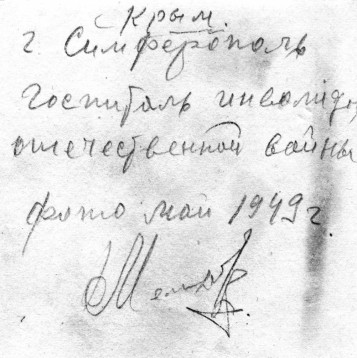 Крым.
г. Симферополь
Госпиталь инвалидов
отечественной войны
фото май 1949 г.